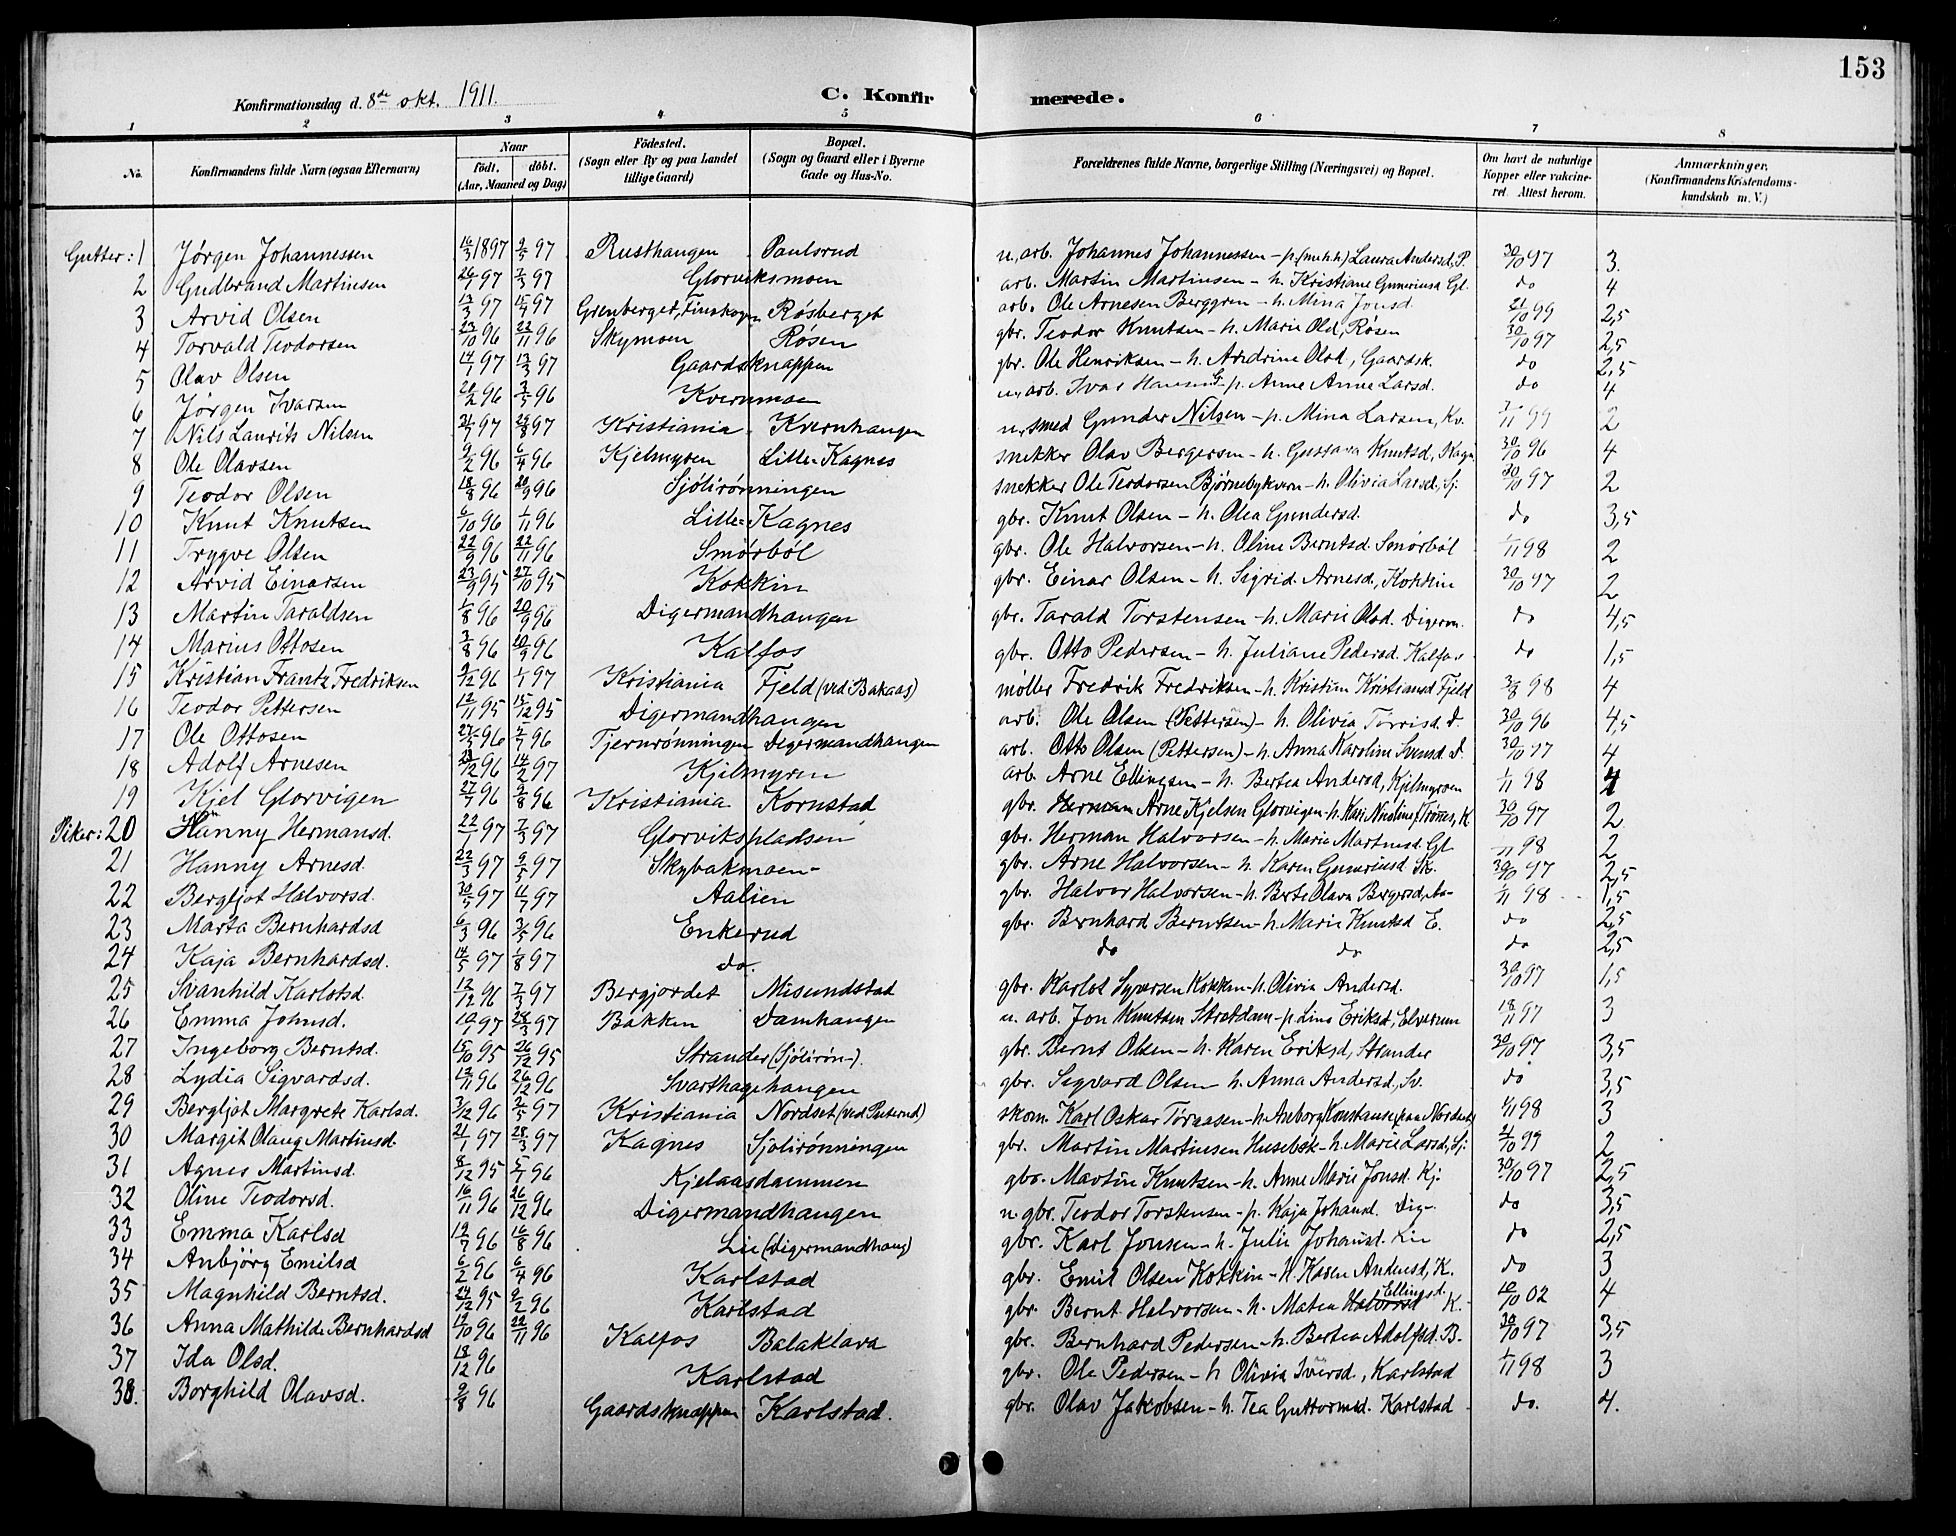 153
Konfirmationsdag d. 8de okt. 1911.
C. Konfirmerede.
1 2 3 4 5 6 7 8
No. Konfirmandens fulde Navn (ogsaa Efternavn) Naar født. døbt. (Aar, Maaned og Dag) Fødested. (Sogn eller By og paa Landet tillige Gaard) Bopæl. (Sogn og Gaard eller i Byerne Gade og Hus-No. Forældrenes fulde Navne, borgerlige Stilling (Næringsvei) og Bopæl. Om havt de naturlige Kopper eller vaccineret. Attest herom. Anmærkninger, (Konfirmandens Kristendomskundskab m. V.)
Gutter: 1 Jørgen Johannessen 16/3 1897 9/5 97 Rusthaugen Paulsrud u. arb. Johannes Johannessen - p. Laura Andersd. P. 30/10 97 3.
2 Gudbrand Martinsen 26/1 97 7/3 97 Glorviksmoen arb. Martin Martinsen - h. Kristiane Guneriusd Gl. do 4
3 Arvid Olsen 13/3 97 97 Grenberget, Finskogen Røsberget arb. Ole Arnesen Berggren - h. Mina Jonsd. 21/10 99 2,5
4 Torvald Teodorsen 23/10 96 22/11 96 Skymoen Røsen gbr. Teodor Knutsen - h. Marie Olsd, Røsen 30/10 97 2,5
5 Olav Olsen 14/1 97 13/3 97 Gaardsknappen gbr. Ole Henriksen - h. Andrine Olsd, Gaardsk. do 2,5
6 Jørgen Ivarsen 96 3/5 96 Kvernmoen u. arb. Ivar Hansen - p. Anne Larsd. do 4
7 Nils Laurits Nilsen 97 29/8 97 Kristiania Kvernhaugen u. smed Gunder Nilsen - p. Mina Larsen, Kv. 99 2
8 Ole Olavsen 9/2 96 6/4 96 Kjelmyren Lille-Kagnes snekker Olav Bergersen - h. Gustava Knutsd, Kagn. 30/10 96 4
9 Teodor Olsen 18/8 96 20/9 96 Sjølirønningen snekker Ole Teodorsen Bjørnebykvern - h. Olivia Larsd, Sj. 30/10 97 2
10 Knut Knutsen 6/10 96 1/11 96 Lille-Kagnes gbr. Knut Olsen - h. Olea Gundersd. do 3,5
11 Trygve Olsen 22/9 96 22/11 96 Smørbøl gbr. Ole Halvorsen - h. Oline Berntsd. Smørbøl 1/11 98 2
12 Arvid Einarsen 23/9 95 27/10 95 Kokkin gbr. Einar Olsen - h. Sigrid Arnesd, Kokkin 30/10 97 2
13 Martin Taraldsen 1/8 96 20/9 96 Digermandhaugen gbr. Tarald Torstensen - h. Marie Olsd. Digerm. do 4,5
14 Marius Ottosen 3/8 96 20/9 96 Kalfos gbr. Otto Pedersen - h. Juliane Pedersd. Kalfos do 1,5
15 Kristian Frantz Fredriksen 9/12 96 1/1 97 Kristiania Fjeld (ved Bakaas) møller Fredrik Fredriksen - h. Kristine Kristiansd Fjeld 98 4
16 Teodor Pettersen 12/11 95 15/12 95 Digermandhaugen arb. Ole Olsen (Pettersen) - h. Olivia Torrisd. D. 30/10 96 4,5
17 Ole Ottosen 96 96 Tjernrønningen Digermandhaugen arb. Otto Olsen (Pettersen) - h. Anna Karoline Svensd. D. 30/10 97 4
18 Adolf Arnesen 12 96 14/2 97 Kjelmyren arb. Arne Ellingsen - h. Bertea Andersd, Kjelmyren 1/11 98 4
19 Kjel Glorvigen 27/7 96 9/8 96 Kristiania Kornstad gbr. Herman Arne Kjelsen Glorvigen - h. Kari Nicoline f. Trønes, K. 30/10 97 2
Piker: 20 Hanny Hermansd. 22/1 97 7/3 97 Glorvikspladsen gbr. Herman Halvorsen - h. Marie Martinsd. Gl. 11 98 2
21 Hanny Arnesd. 22/3 97 9/5 97 Skybakmoen gbr. Arne Halvorsen - h. Karen Guneriusd Sk. 30/10 97 2,5
22 Bergljot Halvorsd. 30/5 97 11/7 97 Aalien gbr. Halvor Halvorsen - h. Berte Olava Bergersd, Aa- 1/11 98 1,5
23 Marta Bernhardsd 6/3 96 3/5 96 Enkerud gbr. Bernhard Berntsen - h. Marie Knutsd E. do 2,5
24 Kaja Bernhardsd. 14/5 97 1/8 97 do. do do do 2,5
25 Svanhild Karlotsd. 12/12 96 7/3 97 Bergjordet Misundstad gbr. Karlot Syversen Kokken - h. Olivia Andersd. 30/10 97 1,5
26 Emma Johnsd. 10/1 97 28/3 97 Bakken Damhaugen u. arb. Jon Knutsen Strætdam - p. Lina Eriksd, Elverum 18/11 97 3
27 Ingeborg Berntsd. 15/10 95 26/12 95 Strander (Sjølirøn-). gbr. Bernt Olsen - h. Karen Eriksd, Strander 30/10 97 3,5
28 Lydia Sigvardsd. 12/11 96 26/12 96 Svarthagehaugen gbr. Segvard Olsen - h. Anna Andersd, Sv. do 3,5
29 Bergljot Margrete Karlsd. 3/12 96 2/5 97 Kristiania Nordset (ved Peterud) skom. Karl Oskar Tøraasen - h. Anborg Konstanse (paa Nordset) 1/11 98 3
30 Margit Olaug Martinsd. 21/1 97 28/3 97 Kagnes Sjølirønningen gbr. Martin Martinsen Husebæk - h. Marie Larsd, Sj. 21/10 99 2
31 Agnes Martinsd. 8/12 95 5/1 96 Kjelaasdammen gbr. Martin Knutsen - h. Anne Marie Jonsd. Kj. 30/10 97 2,5
32 Oline Teodorsd. 16/11 96 26/12 96 Digermandhaugen u. gbr. Teodor Torstensen - p. Kaja Johansd. Dig-. do 3,5
33 Emma Karlsd 19/7 96 16/8 96 Lie (Digermandhaug) gbr. Karl Jonsen - h. Julie Johansd. Lie do 2,5
34 Anbjørg Emilsd 6/2 96 6/4 96 Karlstad gbr. Emil Olsen Kokkin - h. Karen Andersd, K. do 3
35 Magnhild Berntsd. 24/12 95 9/2 96 Karlstad gbr. Bernt Halvorsen - h. Matea Halvorsd Ellingsd. K. 10/10 02 4
36 Anna Mathilde Bernhardsd 19/10 96 22/11 96 Kalfos Balaklava gbr. Bernhard Pedersen - h. Bertea Adolfsd. B. 30/10 97 3,5
37 Ida Olsd. 18/12 96 Karlstad gbr. Ole Pedersen - h. Olivia Iversd., Karlstad 1/11 98 3
38. Borghild Olavsd. 9/8 96 Gaardsknappen Karlstad. gbr. Olav Jakobsen - h. Tea Guttormsd. Karlstad do. 4.